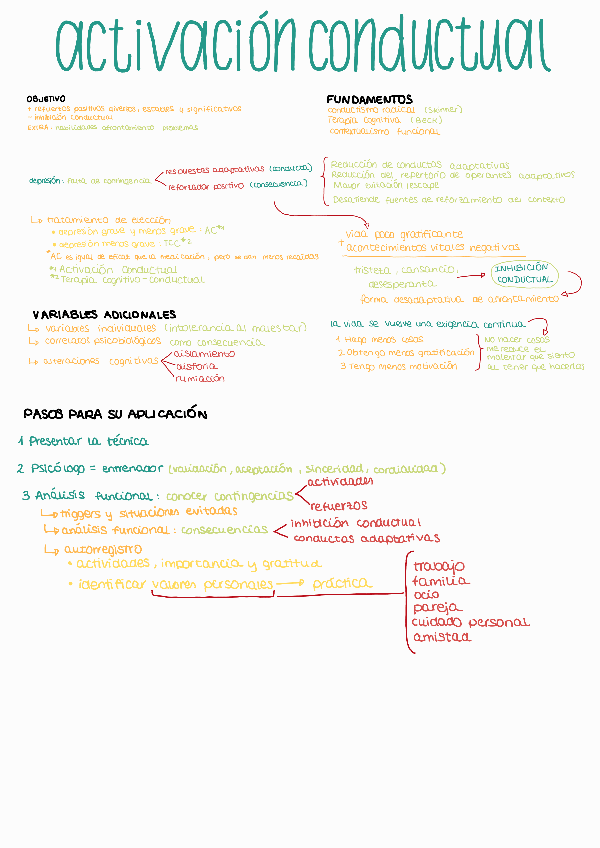 activación conductual
OBJETIVO
+ refuerzos positivos diversos, estables y significativos
- inhibición conductual
EXTRA: habilidades afrontamiento problemas
FUNDAMENTOS
conductismo radical (Skinner)
Terapia cognitiva (Beck)
contextualismo funcional
depresión: falta de contingencia
respuestas adaptativas (conducta)
reforzador positivo (consecuencia)
Reducción de conductas adaptativas
Reducción del repertorio de operantes adaptativos
Mayor evitación/escape
Desatiende fuentes de reforzamiento del contexto
↳ tratamiento de elección:
* depresión grave y menos grave: AC*¹
* depresión menos grave: TCC*²
*AC es igual de eficaz que la medicación, pero se dan menos recaídas
*¹ Activación Conductual
*² Terapia cognitivo-conductual
vida poco gratificante
↑ acontecimientos vitales negativos
tristeza, cansancio,
desesperanza
INHIBICIÓN
CONDUCTUAL
forma desadaptativa de afrontamiento
VARIABLES ADICIONALES
↳ variables individuales (intolerancia al malestar)
↳ correlatos psicobiológicos como consecuencia
↳ alteraciones cognitivas
aislamiento
disforia
rumiación
la vida se vuelve una exigencia continua
1 Hago menos cosas
2 Obtengo menos gratificación
3 Tengo menos motivación
No hacer cosas
me reduce el
malestar que siento
al tener que hacerlas
PASOS PARA SU APLICACIÓN
1 Presentar la técnica
2 Psicólogo = entrenador (validación, aceptación, sinceridad, cordialidad)
3 Análisis funcional: conocer contingencias
actividades
refuerzos
↳ triggers y situaciones evitadas
↳ análisis funcional: consecuencias
inhibición conductual
conductas adaptativas
↳ autorregistro
* actividades, importancia y gratitud
* identificar valores personales → práctica
trabajo
familia
ocio
pareja
cuidado personal
amistad